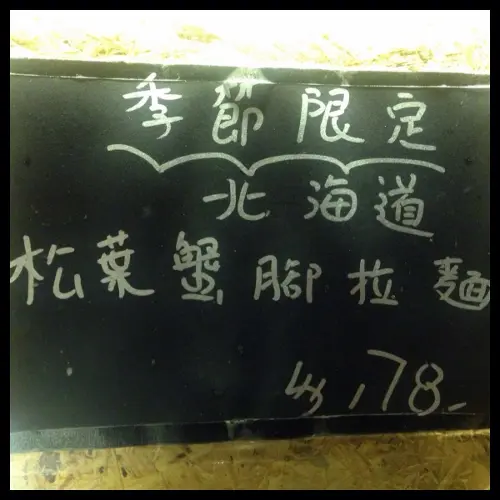 季節限定
北海道
松葉蟹腳拉麵
178.-